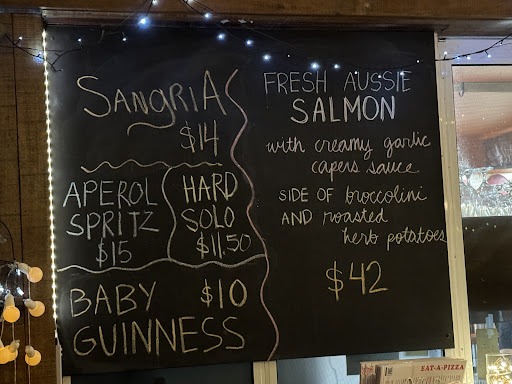 SANGRIA
$14
APEROL
SPRITZ
$15
HARD
SOLO
$11.50
BABY $10
GUINNESS
FRESH AUSSIE
SALMON
with creamy garlic
capers sauce
SIDE OF broccolini
AND roasted
herb potatoes
$42
EAT-A-PIZZA